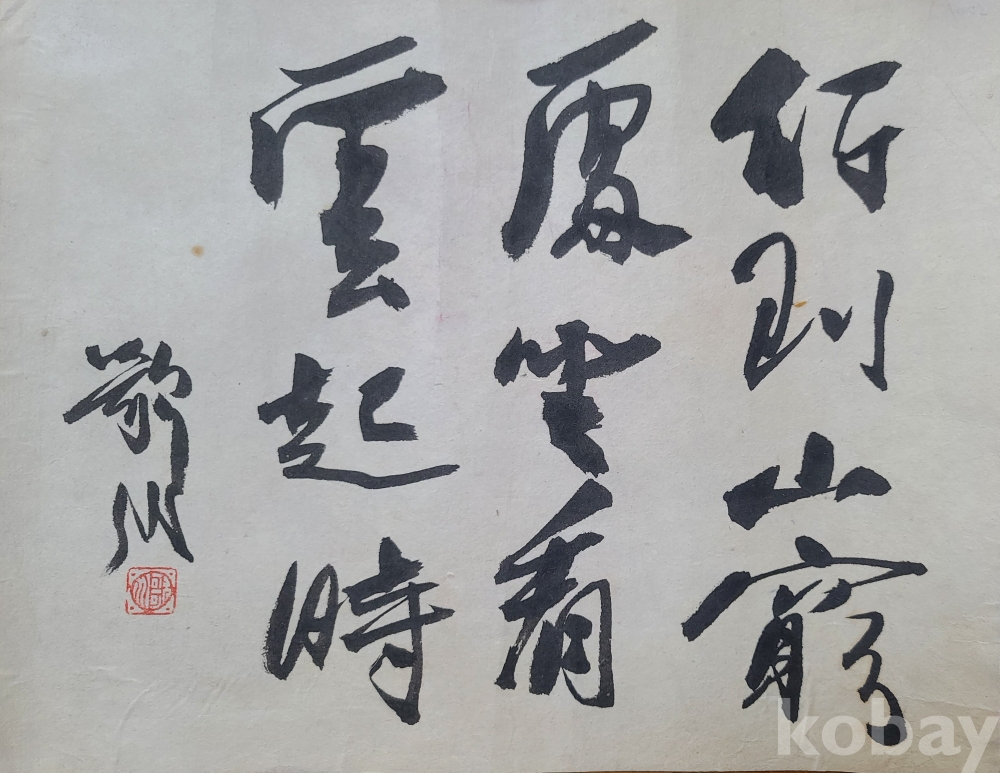 行到山窮
處坐看
雲起時
川
kobay